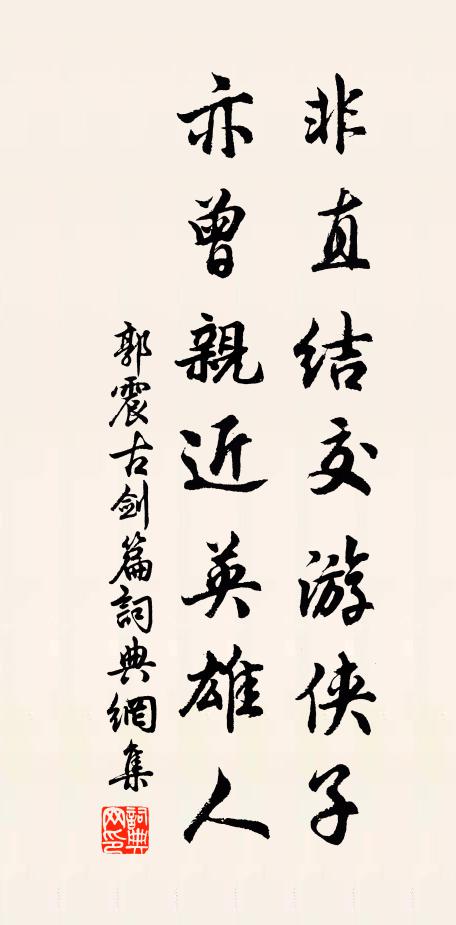 非直结交游侠子
亦曾親近英雄人
郭震古剑篇詞典網集
詞典
网印